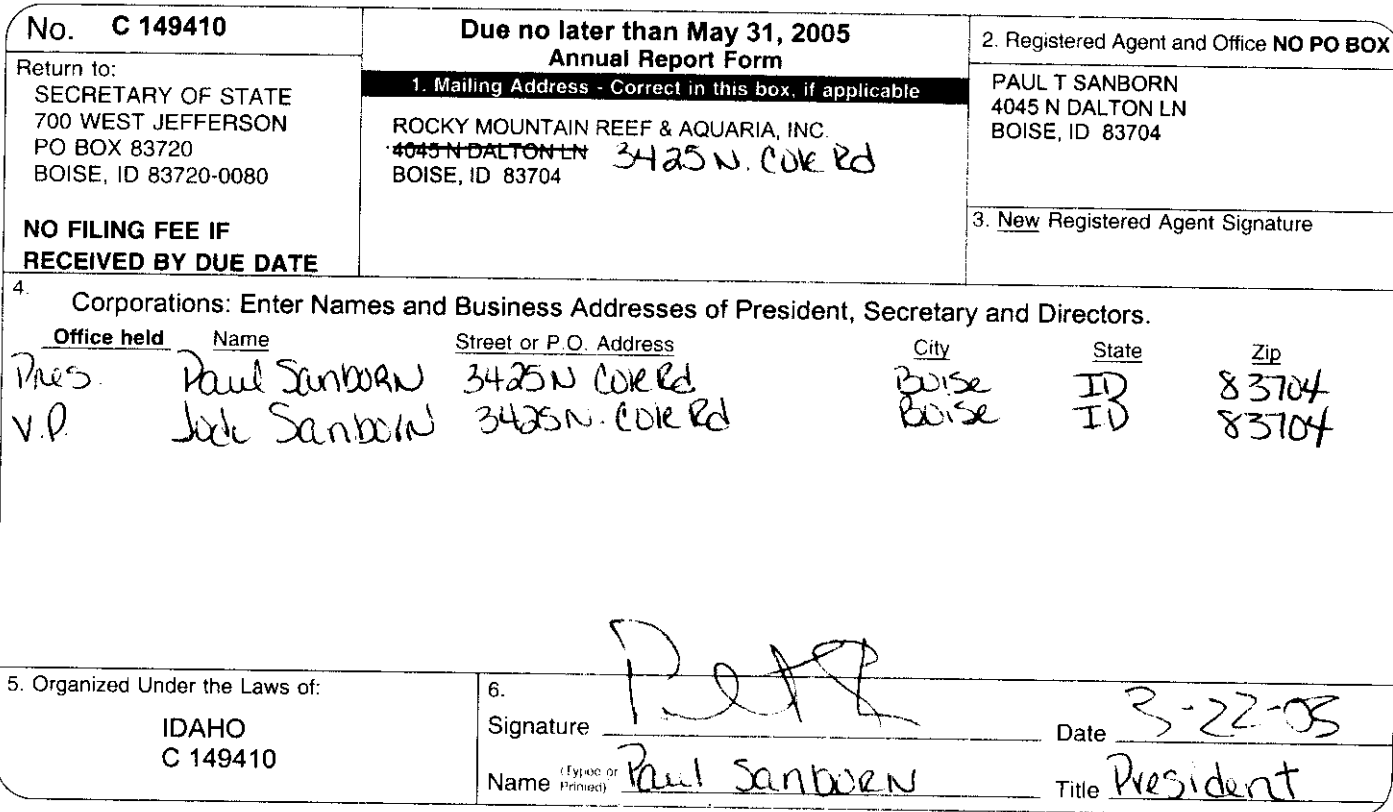 No. C 149410
Return to:
SECRETARY OF STATE
700 WEST JEFFERSON
PO BOX 83720
BOISE, ID 83720-0080
NO FILING FEE IF
RECEIVED BY DUE DATE
Due no later than May 31, 2005
Annual Report Form
1. Mailing Address - Correct in this box, if applicable
ROCKY MOUNTAIN REEF & AQUARIA, INC.
4045 N DALTON LN 3425 N. Cole Rd
BOISE, ID 83704
2. Registered Agent and Office NO PO BOX
PAUL T SANBORN
4045 N DALTON LN
BOISE, ID 83704
3. New Registered Agent Signature
4.
Corporations: Enter Names and Business Addresses of President, Secretary and Directors.
Office held Name Street or P.O. Address City State Zip
Pres. Paul Sanborn 3425 N Cole Rd Boise ID 83704
V.P. Jodi Sanborn 3425 N. Cole Rd Boise ID 83704
5. Organized Under the Laws of:
IDAHO
C 149410
6.
Signature
Date 3-22-05
Name (Typed or Printed) Paul Sanborn
Title President